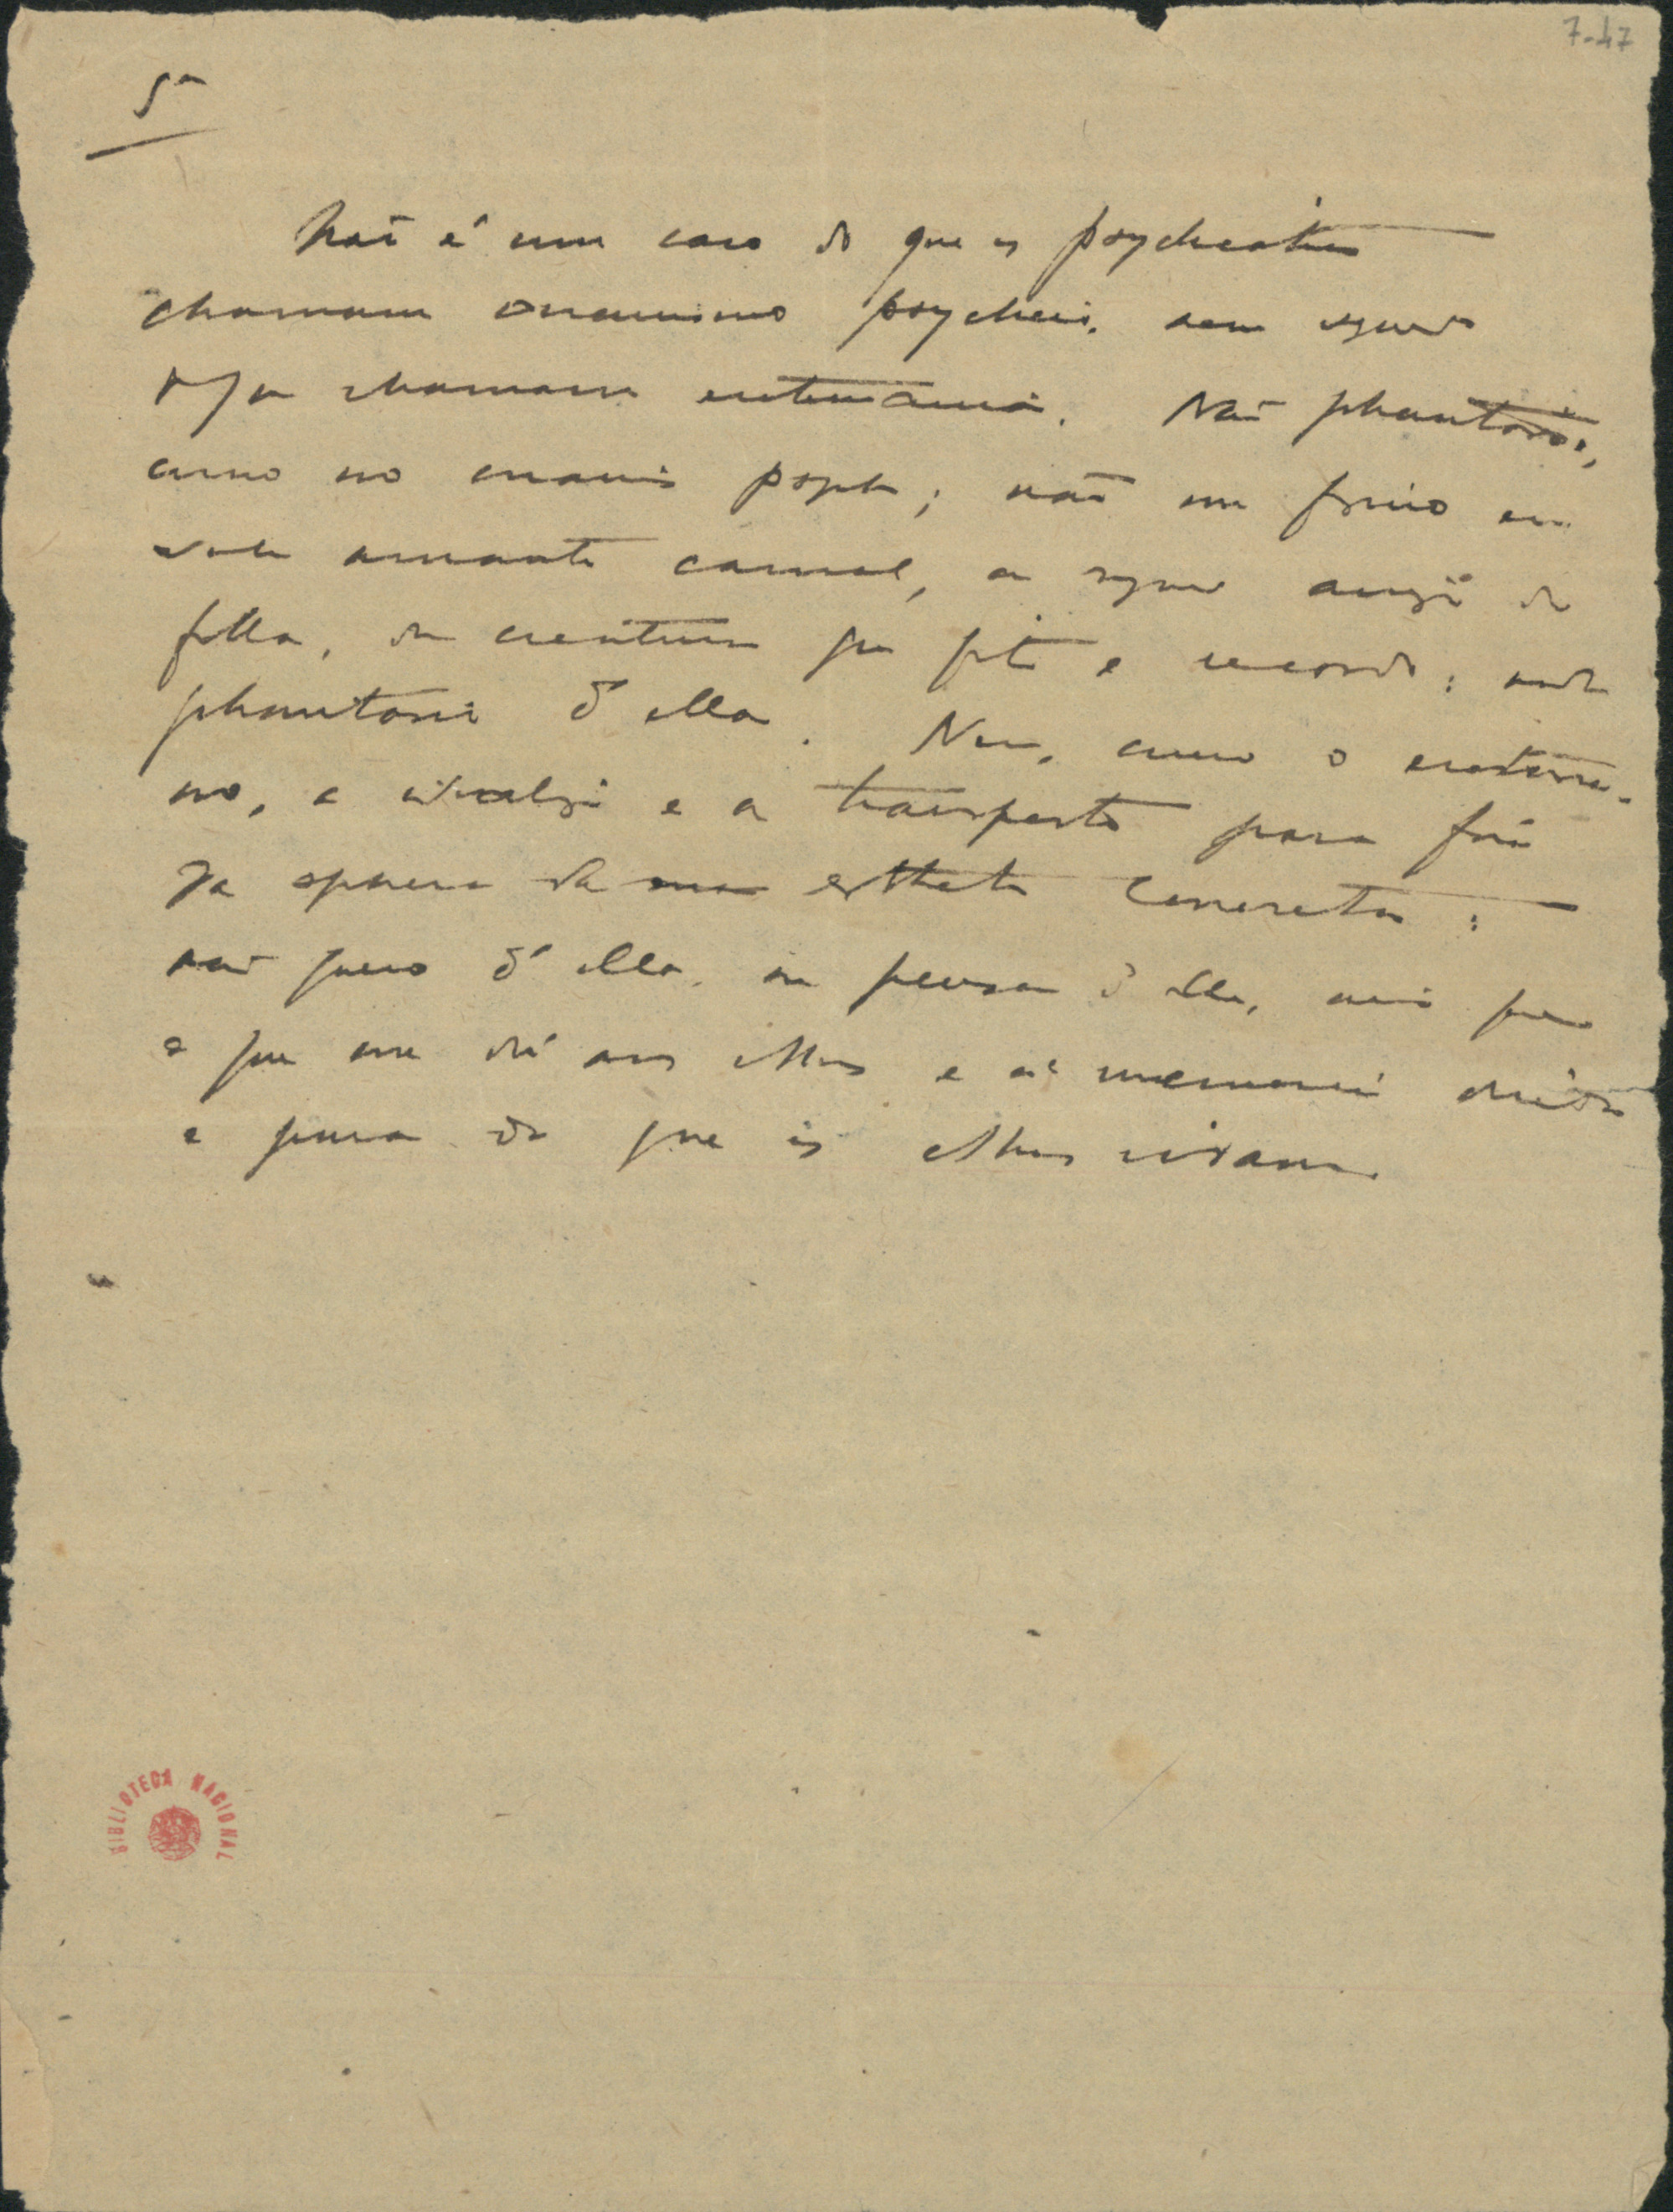 7-47
5ª
Não é um caso do que os psychiatras
chamam onanismo psychico, nem sequer
do que chamam erotomania. Não phantasio,
como no onanismo psychico; não me figuro em
amante carnal, ou amigo de
falla, da creatura que fito e recordo: nada
phantasio d'ella. Nem, como o erotoma-
no, a idealizo e a transporto para fóra
da esphera da esthetica concreta:
não quero d'ella, ou penso d'ella, mais que
o que me dá aos olhos e á memoria directa
e pura do que os olhos viram.
BIBLIOTECA NACIONAL